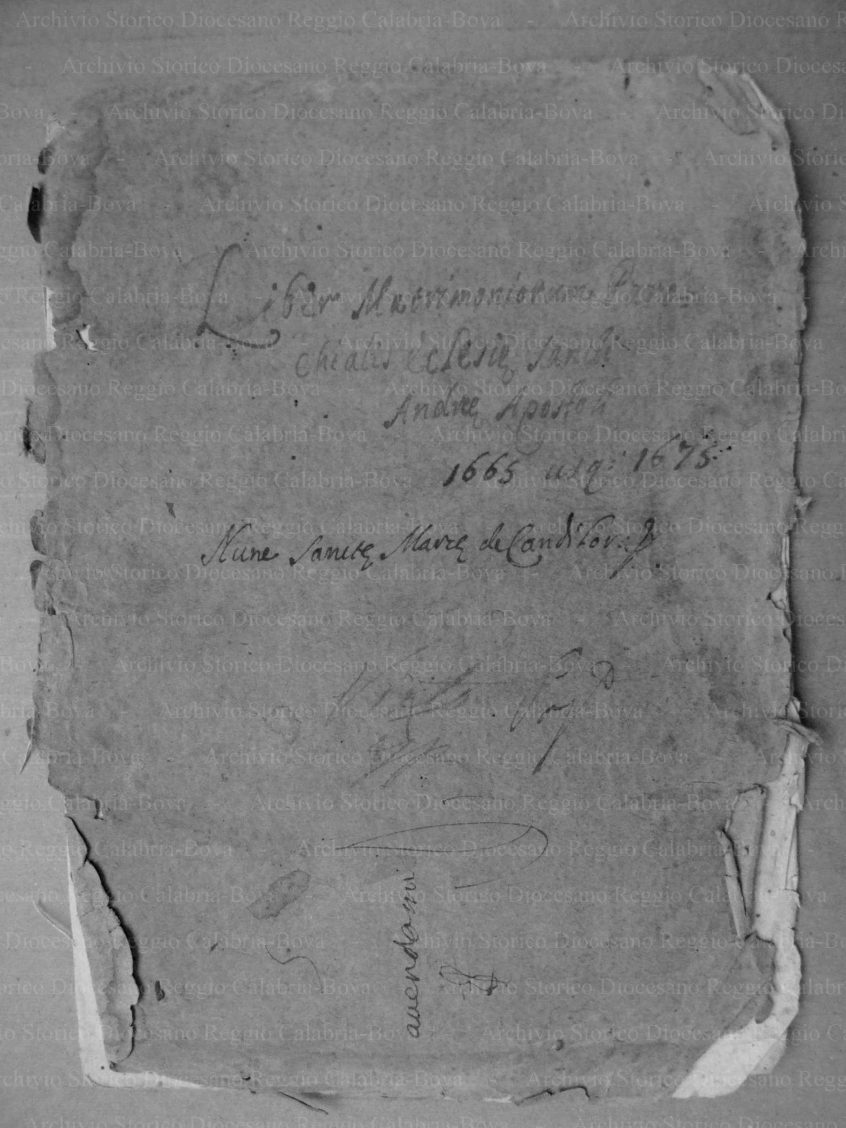 Liber Matrimoniorum Paro
chialis ecclesię Sancti
Andreę Apostoli
1665 usq: 1675
Nunc Sanctę Marię de Canditora
avendomi
Archivio Storico Diocesano Reggio Calabria-Bova